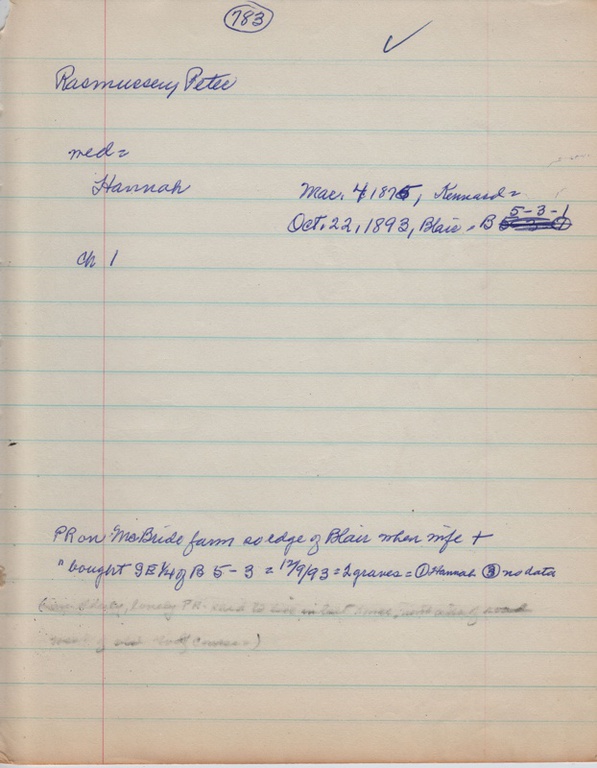 783
✓
Rasmussen, Peter
med =
Hannah Mar. 4, 1875, Kennard =
5-3-1
Oct. 22, 1893, Blair, B
Ch 1
PR on McBride farm so edge of Blair when wife +
" bought SE 1/4 of B 5-3 = 12/9/93 = 2 graves = ① Hannah ③ no data
lonely PR. said to live in tent